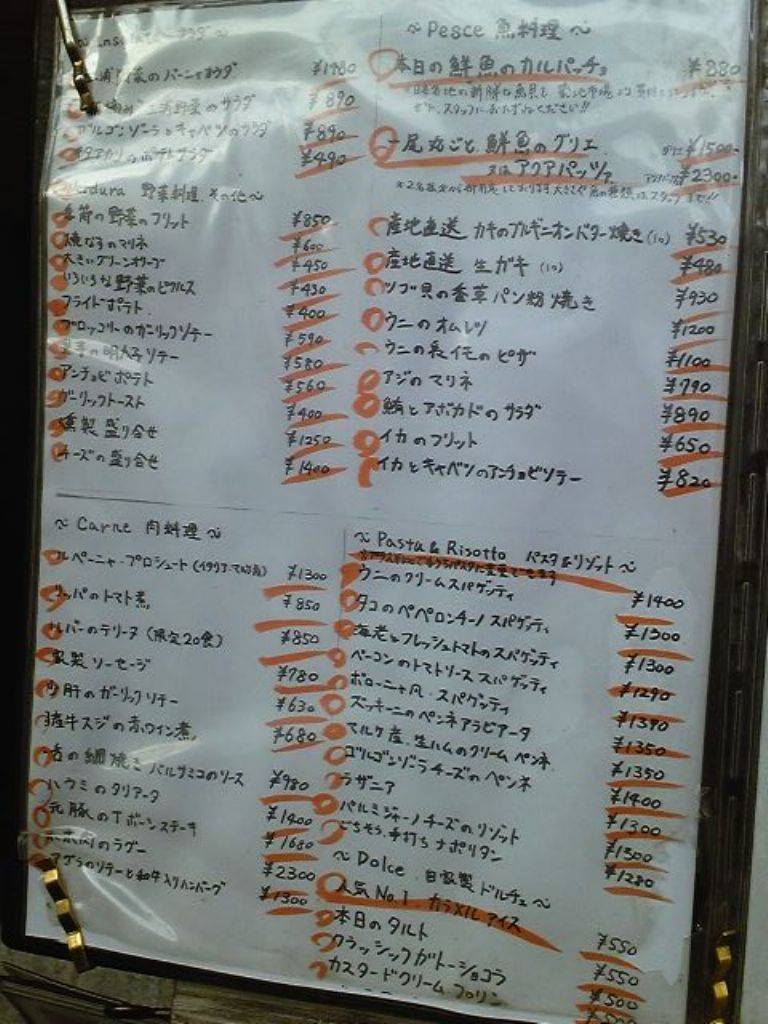 サラダ
¥1980
野菜のサラダ ¥890
ゴルゴンゾーラとキャベツのサラダ ¥890
ポテトサラダ ¥490
野菜料理 その他~
野菜のフリット ¥850
焼なすのマリネ ¥600
大きいグリーンオリーブ ¥450
いろいろな野菜のピクルス ¥430
フライドポテト ¥400
ブロッコリーのガーリックソテー ¥590
明太子ソテー ¥580
アンチョビポテト ¥560
ガーリックトースト ¥400
燻製盛り合せ ¥1250
チーズの盛り合せ ¥1400
~ Pesce 魚料理 ~
本日の鮮魚のカルパッチョ ¥880
一尾丸ごと鮮魚のグリエ ¥1500-
又は アクアパッツァ ¥2300-
産地直送 カキのブルギニオンバター焼き(1コ) ¥530
産地直送 生ガキ (1コ) ¥480
ツブ貝の香草パン粉焼き ¥930
ウニのオムレツ ¥1200
ウニのピザ ¥1100
アジのマリネ ¥790
鮪とアボカドのサラダ ¥890
イカのフリット ¥650
イカとキャベツのアンチョビソテー ¥820
~ Carne 肉料理 ~
プロシュート ¥1300
トリッパのトマト煮 ¥850
レバーのテリーヌ (限定20食) ¥850
自家製ソーセージ ¥780
砂肝のガーリックソテー ¥630
牛スジの赤ワイン煮 ¥680
網焼き バルサミコのソース ¥980
ハラミのタリアータ ¥1400
豚のTボーンステーキ ¥1680
のラグー ¥2300
フォアグラのソテーと和牛入りハンバーグ ¥1300
~ Pasta & Risotto パスタ&リゾット ~
ウニのクリームスパゲッティ ¥1400
タコのペペロンチーノ スパゲッティ ¥1300
海老とフレッシュトマトのスパゲッティ ¥1300
ベーコンのトマトソース スパゲッティ ¥1290
ボローニャ風 スパゲッティ ¥1390
ズッキーニのペンネアラビアータ ¥1350
マルケ産 生ハムのクリームペンネ ¥1350
ゴルゴンゾーラチーズのペンネ ¥1400
ラザニア ¥1300
パルミジャーノチーズのリゾット ¥1300
ごちそう手打ちナポリタン ¥1280
~ Dolce 自家製ドルチェ ~
人気No.1 カラメルアイス ¥550
本日のタルト ¥550
クラッシックガトーショコラ ¥500
カスタードクリームプリン ¥500